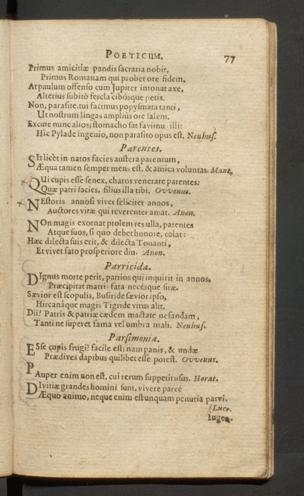 POETICUM. 77
Primus amicitiæ pandis sacraria nobis,
Primus Romanam qui probet ore fidem,
At paulum offenso cum Jupiter intonat axe,
Alterius subitò fercla cibosque petis.
Non, parasite, tui facimus popysmata tanti,
Ut nostrum lingas amplius ore salem.
Excute nunc alios; stomacho sat favimu illi:
Hic Pylade ingenio, non parasito opus est. Neuhus.
Parentes.
SIt licèt in natos facies austera parentum,
Æqua tamen semper mens est, & amica voluntas. Mant.
QUi cupis esse senex, charos venerare parentes:
Quæ patri facies, filius illa tibi. Ovvenus.
NEstoris annosi vives feliciter annos,
Auctores vitæ qui reverenter amat. Anon.
NOn magis exornat prolem res ulla, parentes
Atque suos, si quo debet honore, colat:
Hæc dilecta suis erit, & dilecta Tonanti,
Et vivet fato prosperiore diu. Anon.
Parricida.
DIgnus morte perit, parrios qui inquirit in annos,
Præcipitat matri fata necesque suæ.
Sævior est scopulis, Busiride sævior ipso,
Hircanâque magis Tigride virus alit.
Dii! Patris & patriæ cædem mactate nefandam,
Tanti ne superet fama vel umbra mali. Neuhus.
Parsimonia.
ESse cupis frugi? facile est; nam panis, & undæ
Prædives dapibus quilibet esse potest. Ovvenus.
PAuper enim non est, cui rerum suppetit usus. Horat.
DIvitiæ grandes homini sunt, vivere parcè
Æquo animo, neque enim est unquam penuria parvi.
(Lucr.
Iuge-